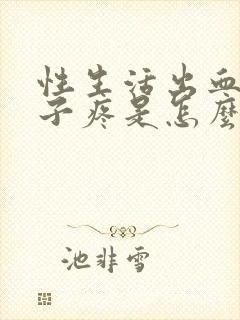 性生活出血
子疼是怎麼
池非雪